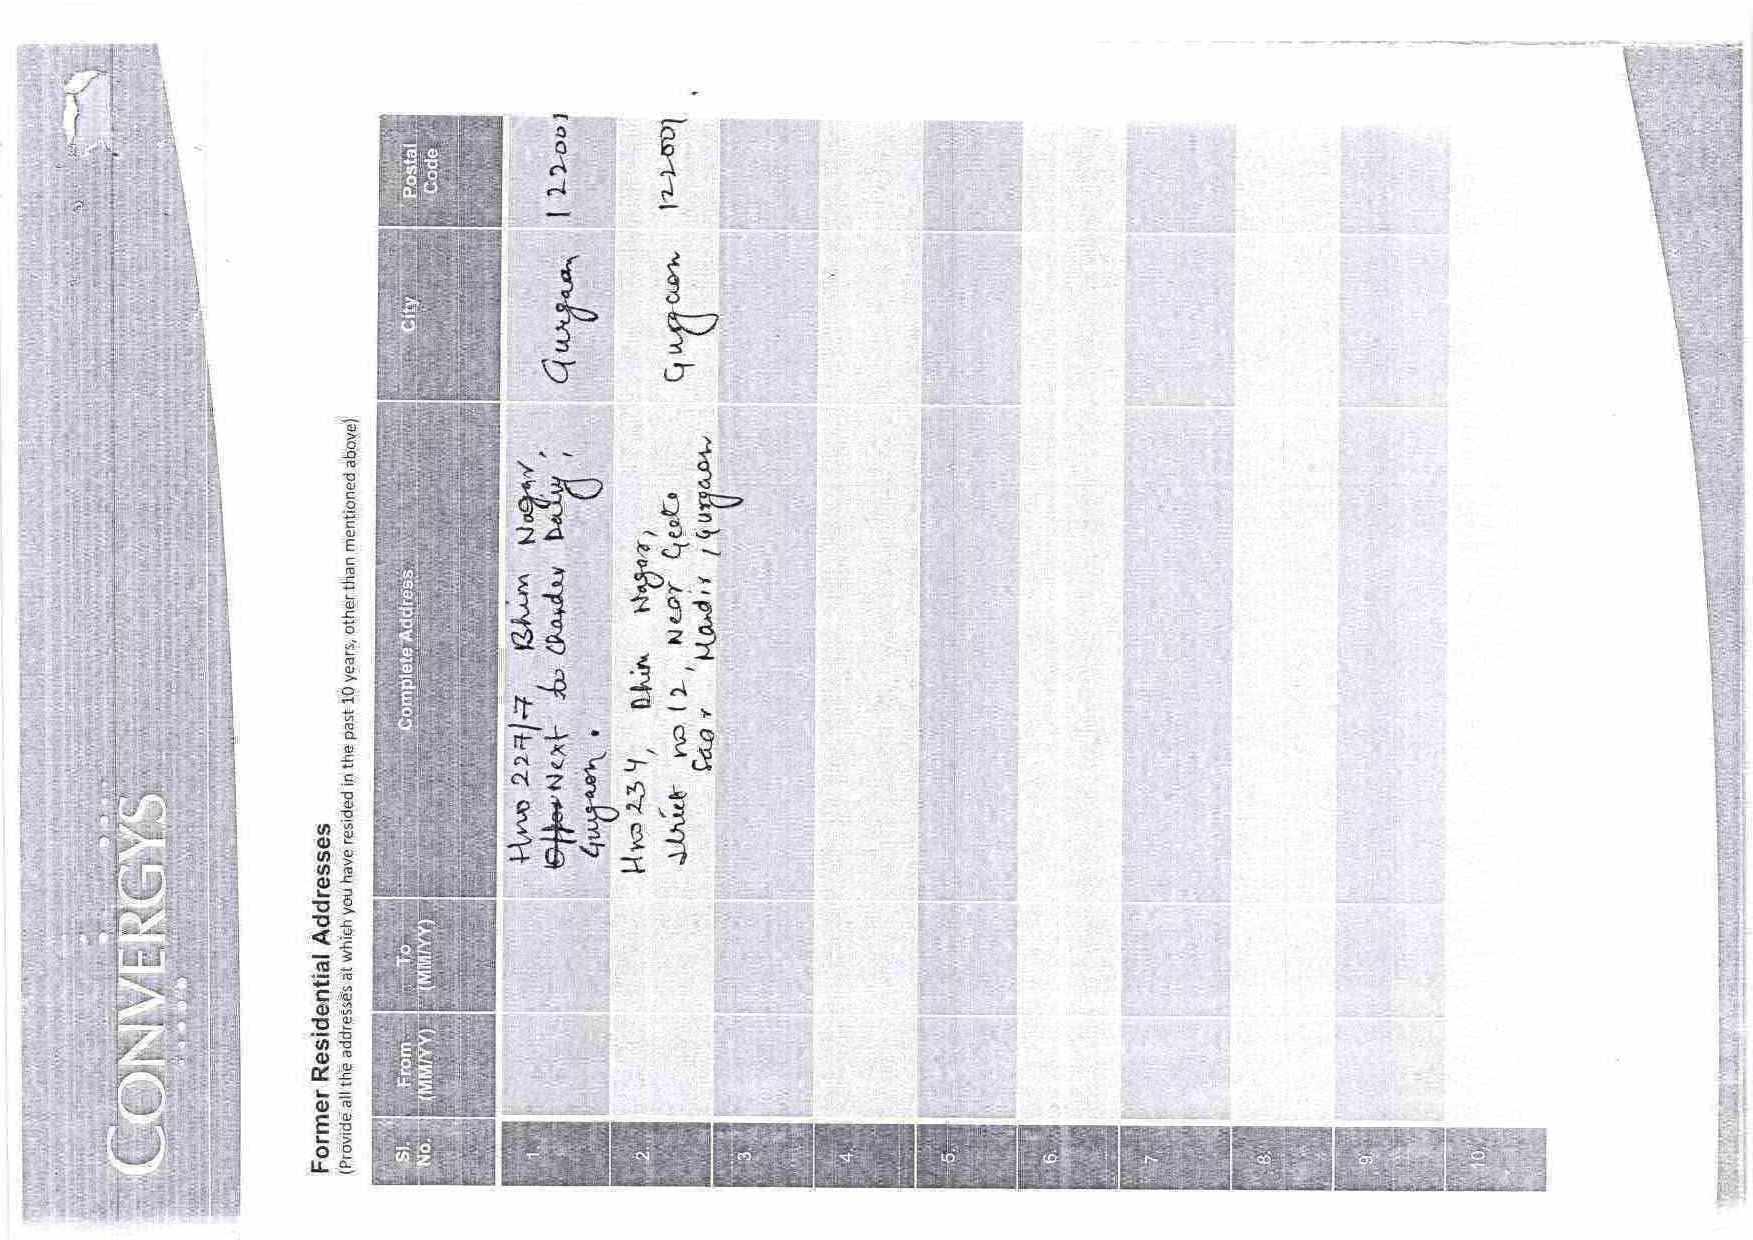 CONVERGYS
Former Residential Addresses
(Provide all the addresses at which you have resided in the past 10 years, other than mentioned above)
Sl. No. From (MM/YY) To (MM/YY) Complete Address City Postal Code
1. Hno 227/7 Bhim Nagar, Gurgaon 122001
Oppos Next to Chander Dairy,
Gurgaon.
2. Hno 234, Bhim Nagar, Gurgaon 122001
Street no 12, Near Geeta
Sagar Mandir, Gurgaon
3.
4.
5.
6.
7.
8.
9.
10.